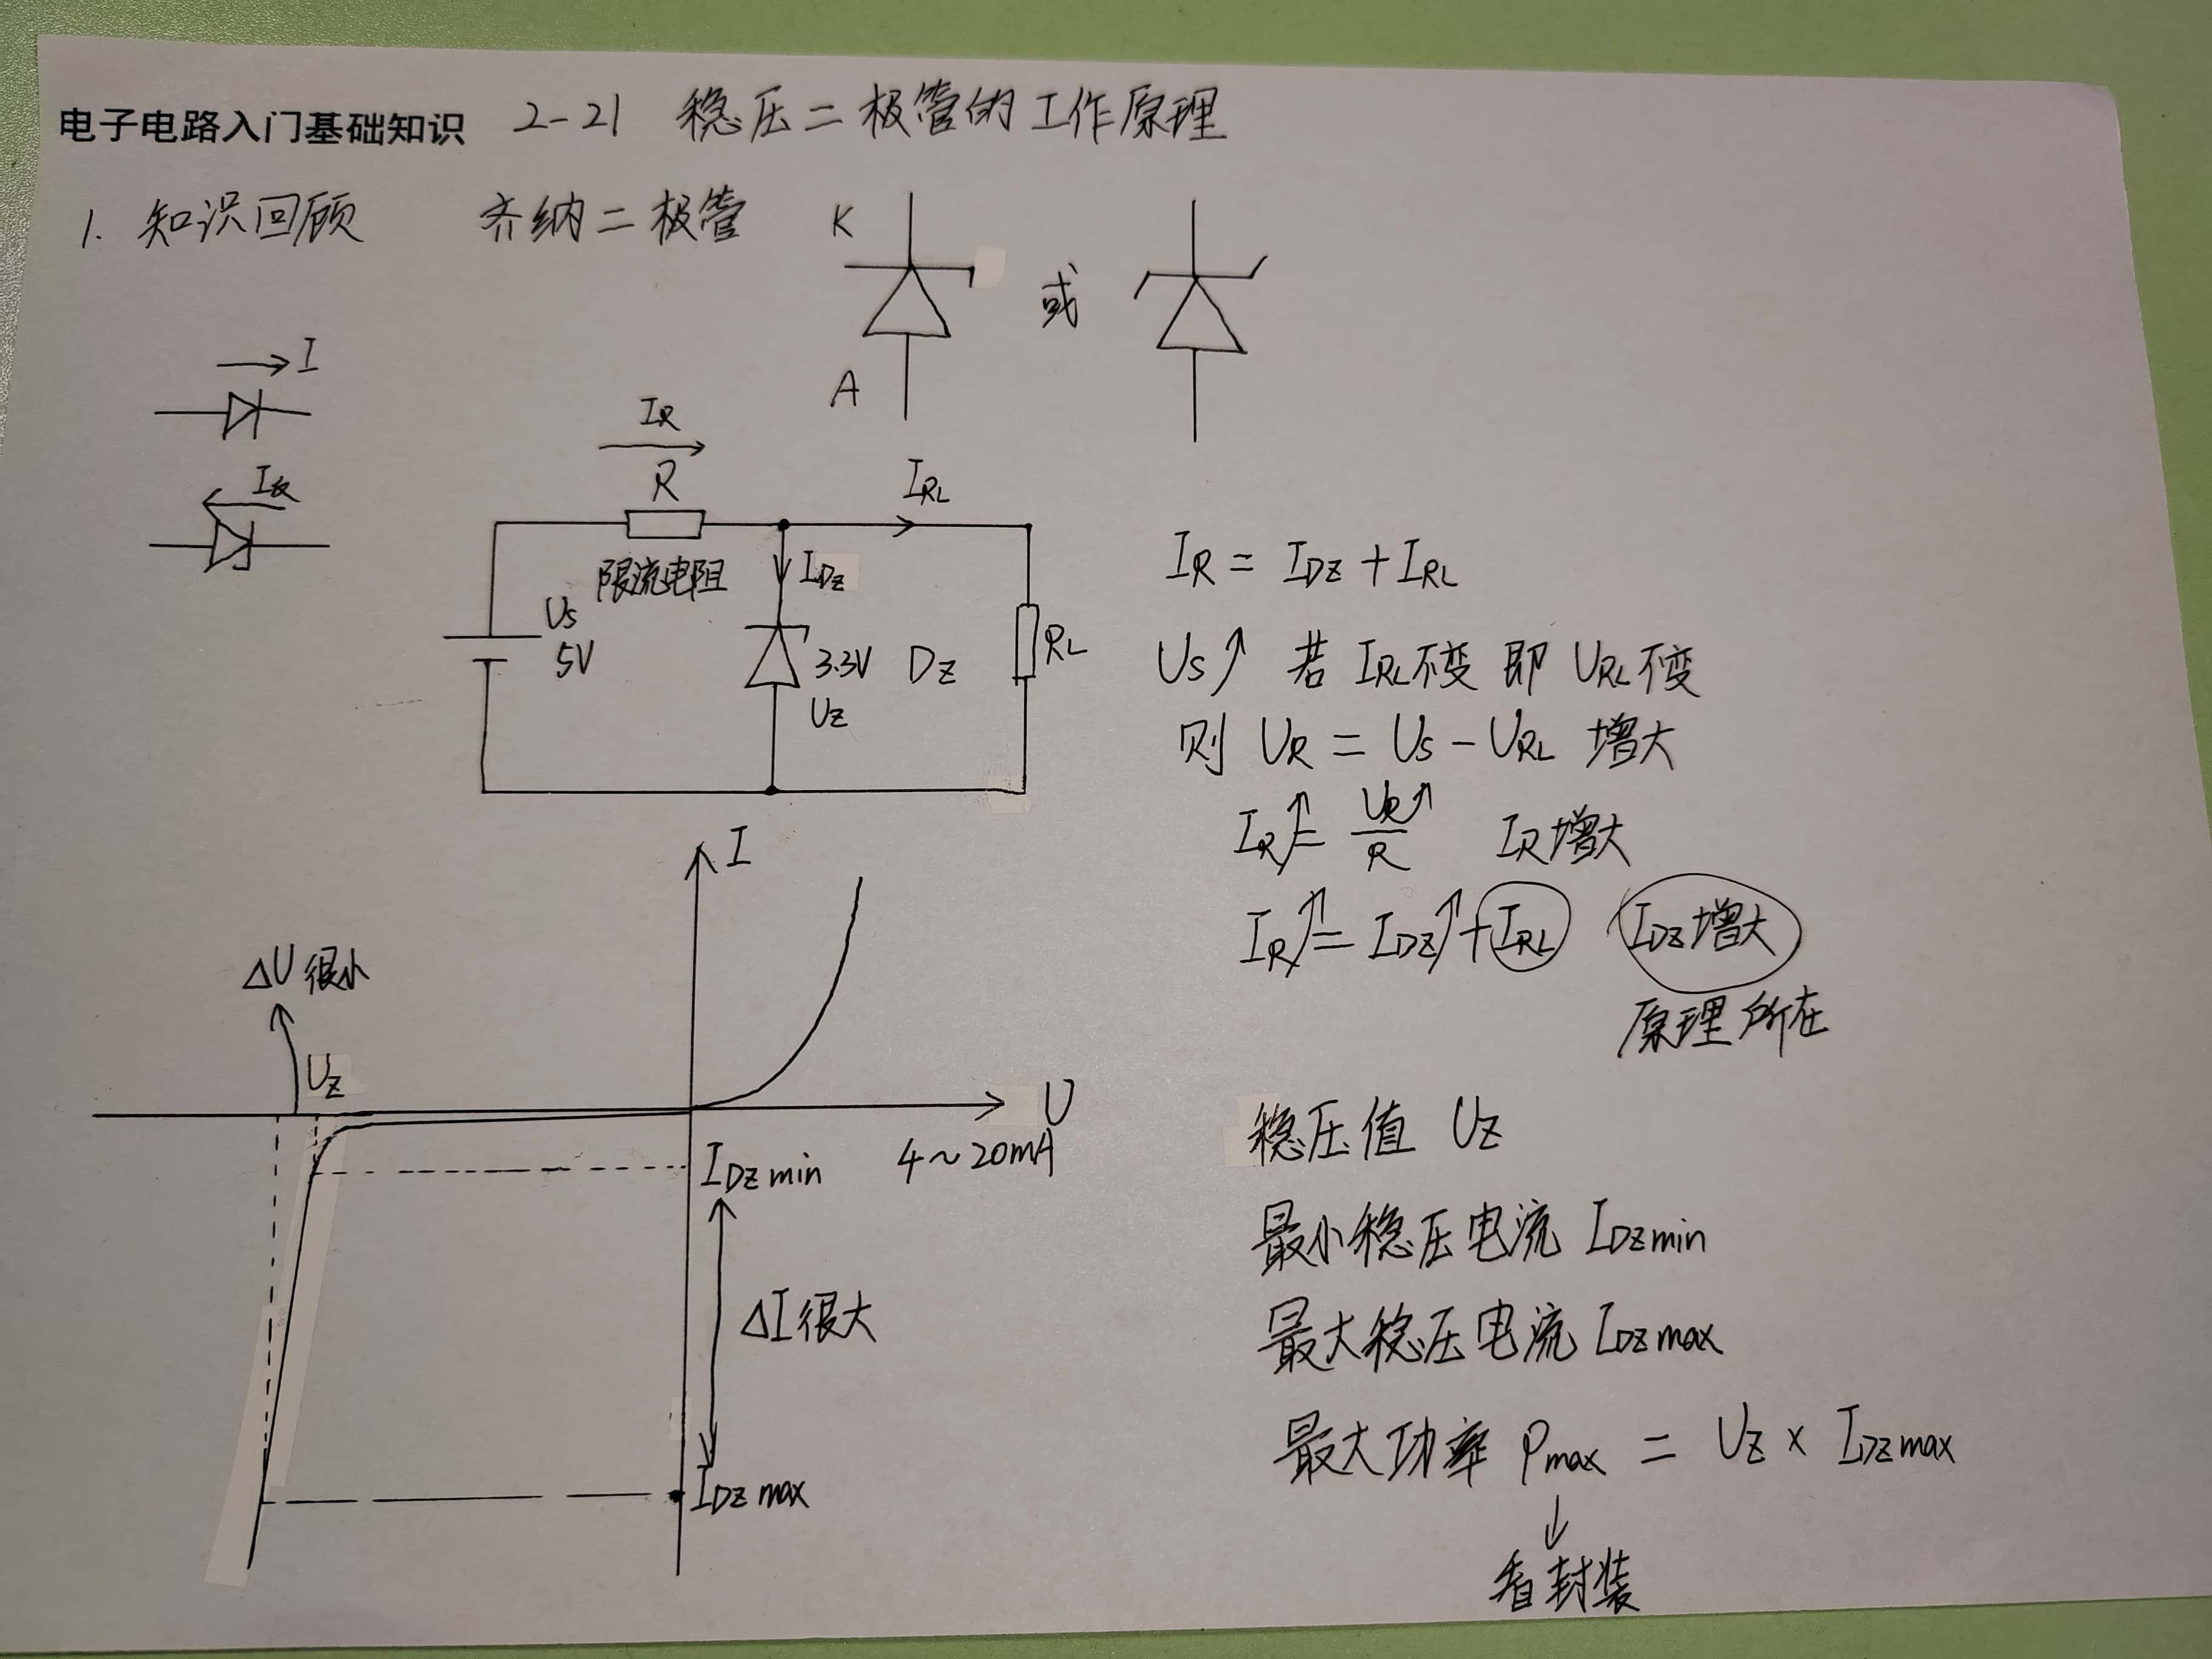 电子电路入门基础知识 2-21 稳压二极管的工作原理
1. 知识回顾 齐纳二极管
K
A
或
I
I反
IR
R
限流电阻
IRL
IDZ
US
5V
3.3V DZ
UZ
RL
IR = IDZ + IRL
US↑ 若 IRL不变 即 URL不变
则 UR = US - URL 增大
IR↑ = UR↑/R IR增大
IR↑ = IDZ↑ + IRL IDZ增大
原理所在
I
ΔU很小
UZ
U
IDZmin 4~20mA
ΔI很大
IDZmax
稳压值 UZ
最小稳压电流 IDZmin
最大稳压电流 IDZmax
最大功率 Pmax = UZ × IDZmax
↓
看封装